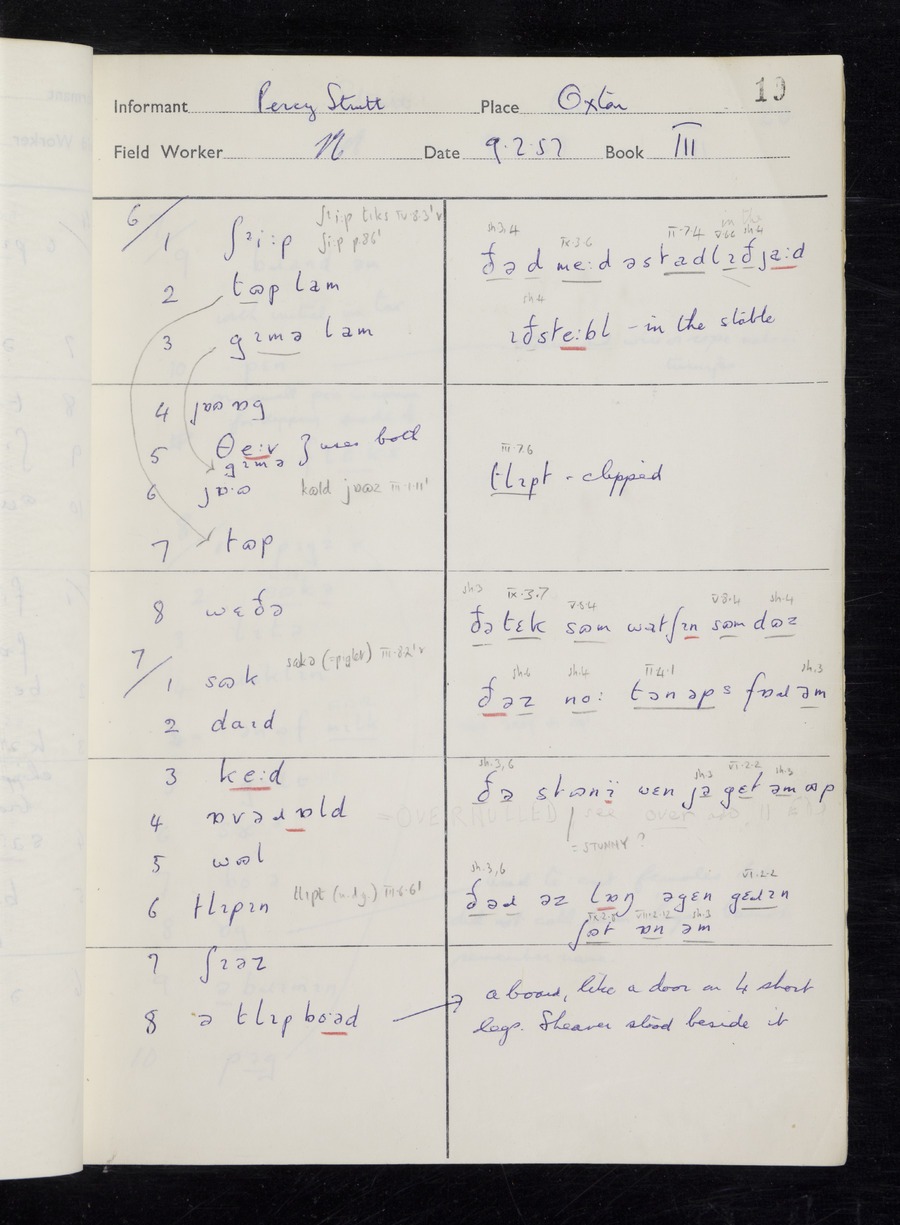 19
Informant Percy Strutt Place Oxton
Field Worker N Date 9.2.57 Book III
6/
ʃɪi:p tiks IV.8.3'v
1 ʃɪi:p ʃi:p p.86'
2 tɷp lam
3 gɪmə lam
4 jɒɷ ɒg
5 θe:v } uses both
gɪmə
6 jɒ.ɷ kɷld jɒɷz III.1.11'
7 tɷp
8 wɛðə
7/
sɷkə (=piglet) III.8.2'v
1 sɷk
2 daɪd
3 ke:d
4 ɒvəɹɒld
5 wɷl
6 tlɪpɪn tlɪpt (v.dg.) III.6.6'
7 ʃɪəz
8 ə tlɪp bo:əd
in the
sh.3,4 IX.3.6 III.7.4 V.6.6 sh.4
ðəd me:d əstadlɪðja:d
sh.4
ɪðste:bl - in the stable
III.7.6
tlɪpt - clipped
sh.3 IX.3.7 V.5.4 V.8.4 sh.4
ðətɛk sɷm watʃɪn sɷm dɷz
sh.6 sh.4 II.4.1 sh.3
ðəz no: tənəps fɒɹəm
sh.3,6 sh.3 VI.2.2 sh.3
ðə stɷnï wɛn jə gɛt əm ɷp
= OVER HULLED / see over
= STUNNY ?
sh.3,6 VI.2.2
ðəɹ əz lɒŋ əgɛn gɛɹɪn
IX.2.8 VII.2.12 sh.3
ʃət ɒn əm
a board, like a door on 4 short
legs. Shearer stood beside it